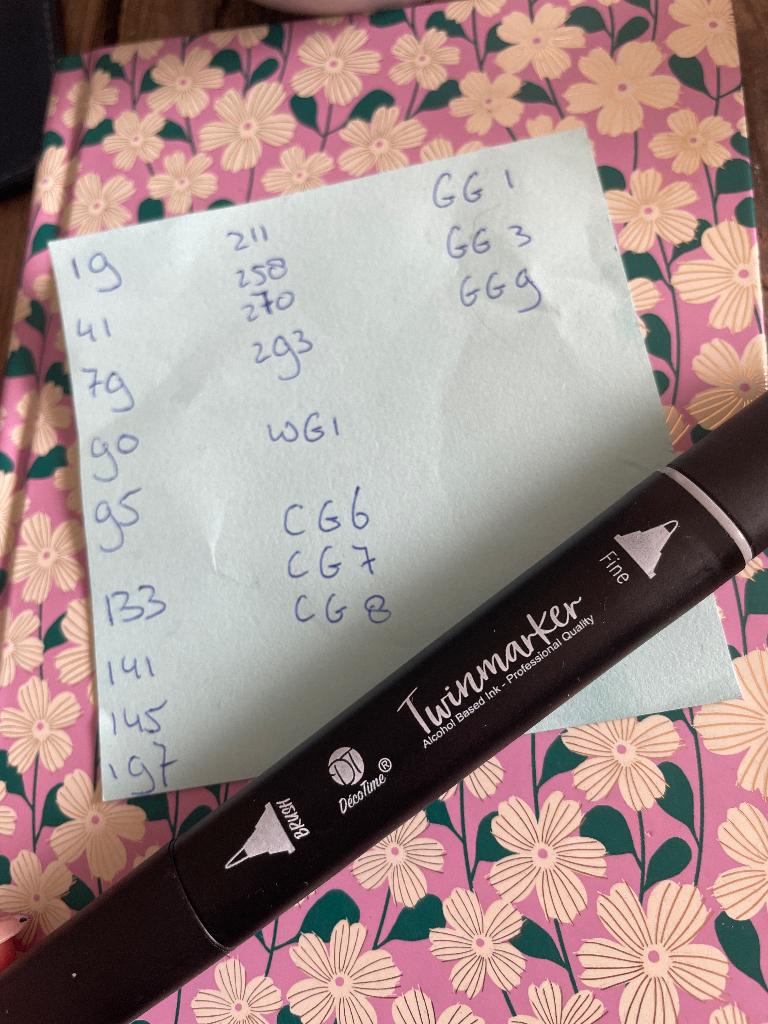 19
41
79
90
95
133
141
145
197
211
258
270
293
WG1
CG6
CG7
CG8
GG1
GG3
GG9
Fine
Twinmarker
Alcohol Based Ink - Professional Quality
DT
DécoTime®
BRUSH